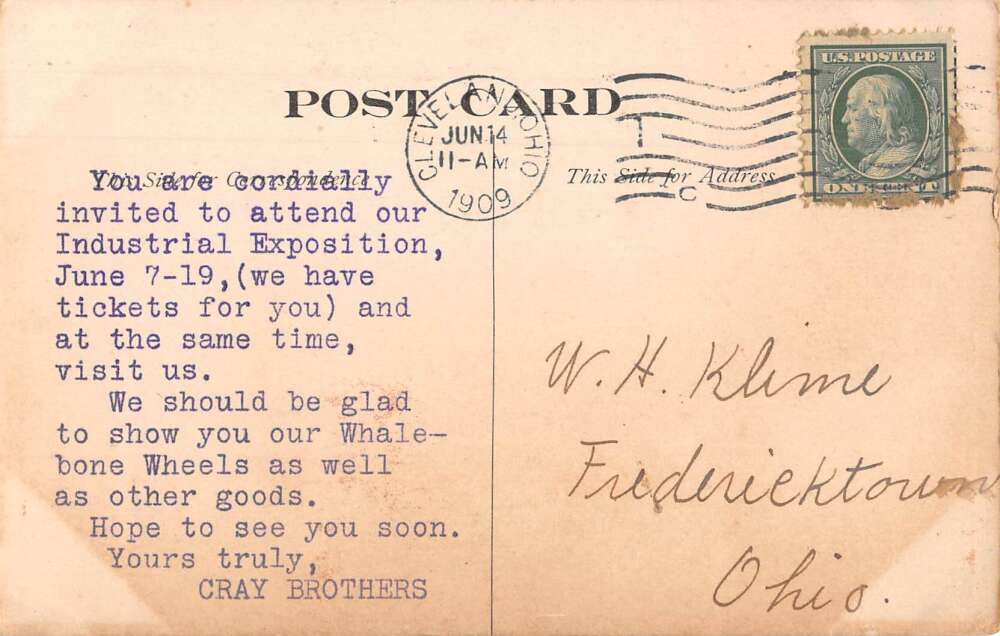 POST CARD
CLEVELAND, OHIO
JUN 14
11-AM
1909
T
C
U.S. POSTAGE
ONE CENT
This Side for Correspondence
This Side for Address
You are cordially
invited to attend our
Industrial Exposition,
June 7-19,(we have
tickets for you) and
at the same time,
visit us.
We should be glad
to show you our Whale-
bone Wheels as well
as other goods.
Hope to see you soon.
Yours truly,
CRAY BROTHERS
W. H. Kline
Fredericktown
Ohio.